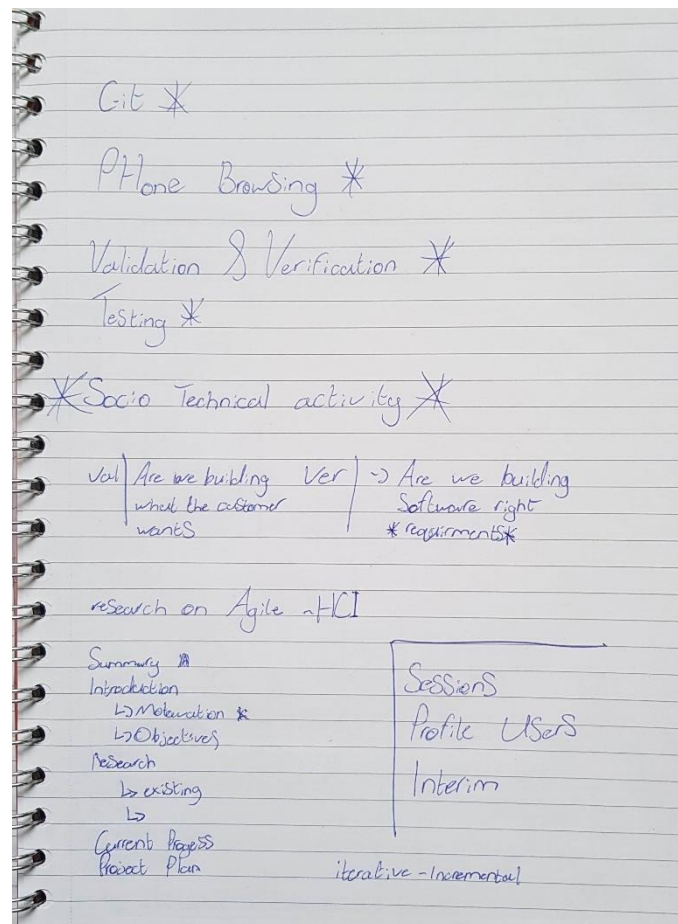 Git *
PHone Browsing *
Validation & Verification *
Testing *
*Socio Technical activity *
Val | Are we building
what the customer
wants
Ver | -> Are we building
Software right
*requirments*
research on Agile -HCI
Summary
Introduction
↳ Motavation *
↳ Objectives
Research
↳ existing
↳
Current Progess
Project Plan
Sessions
Profile Users
Interim
iterative - Incremental